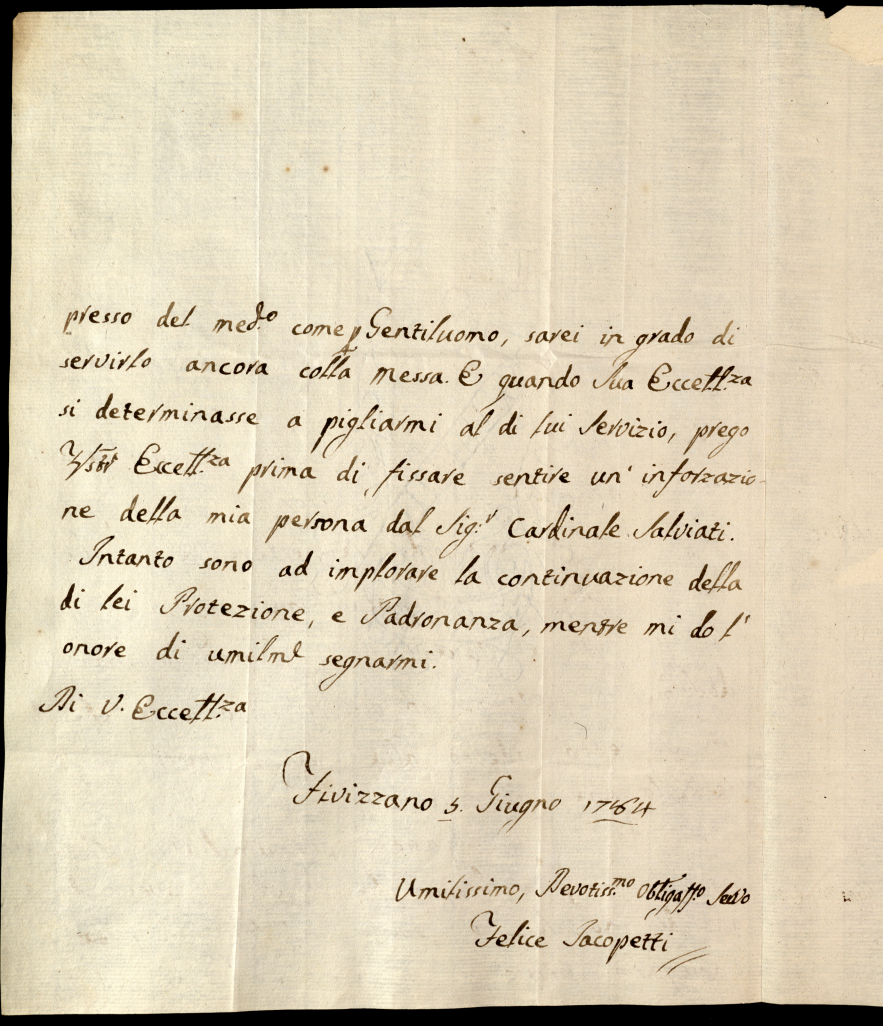 presso del med.o come p Gentiluomo, sarei in grado di
servirlo ancora colla messa. E quando Sua Eccell.za
si determinasse a pigliarmi al di lui Servizio, prego
Vostr Eccell.za prima di fissare sentire un' inforzazio-
ne della mia persona dal Sig.r Cardinale Salviati.
Intanto sono ad implorare la continuazione della
di lei Protezione, e Padronanza, mentre mi do l'
onore di umilme segnarmi.
Di V. Eccell.za
Fivizzano 5. Giugno 1764
Umilissimo, Devotiss.mo Obligass.o Servo
Felice Jacopetti